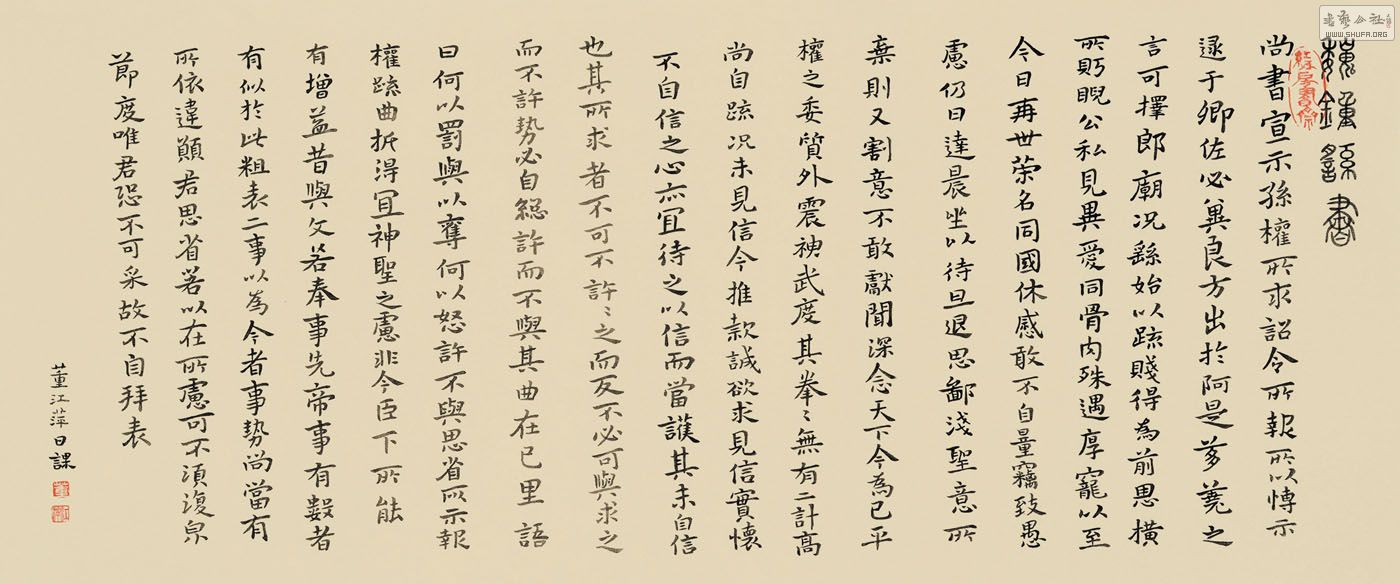 魏鍾繇書
尚書宣示孫權所求詔令所報所以博示
逮于卿佐必冀良方出於阿是芻蕘之
言可擇郎廟況繇始以疏賤得為前恩橫
所眄睨公私見異愛同骨肉殊遇厚寵以至
今日再世榮名同國休慼敢不自量竊致愚
慮仍日達晨坐以待旦退思鄙淺聖意所
棄則又割意不敢獻聞深念天下今為已平
權之委質外震神武度其拳〻無有二計高
尚自疏況未見信今推款誠欲求見信實懷
不自信之心亦宜待之以信而當護其未自信
也其所求者不可不許〻之而反不必可與求之
而不許勢必自絕許而不與其曲在己里語
曰何以罰與以奪何以怒許不與思省所示報
權疏曲折得宜神聖之慮非今臣下所能
有增益昔與文若奉事先帝事有數者
有似於此粗表二事以為今者事勢尚當有
所依違願君思省若以在所慮可不須復
節度唯君恐不可采故不自拜表
董江萍日課
WWW.SHUFA.ORG